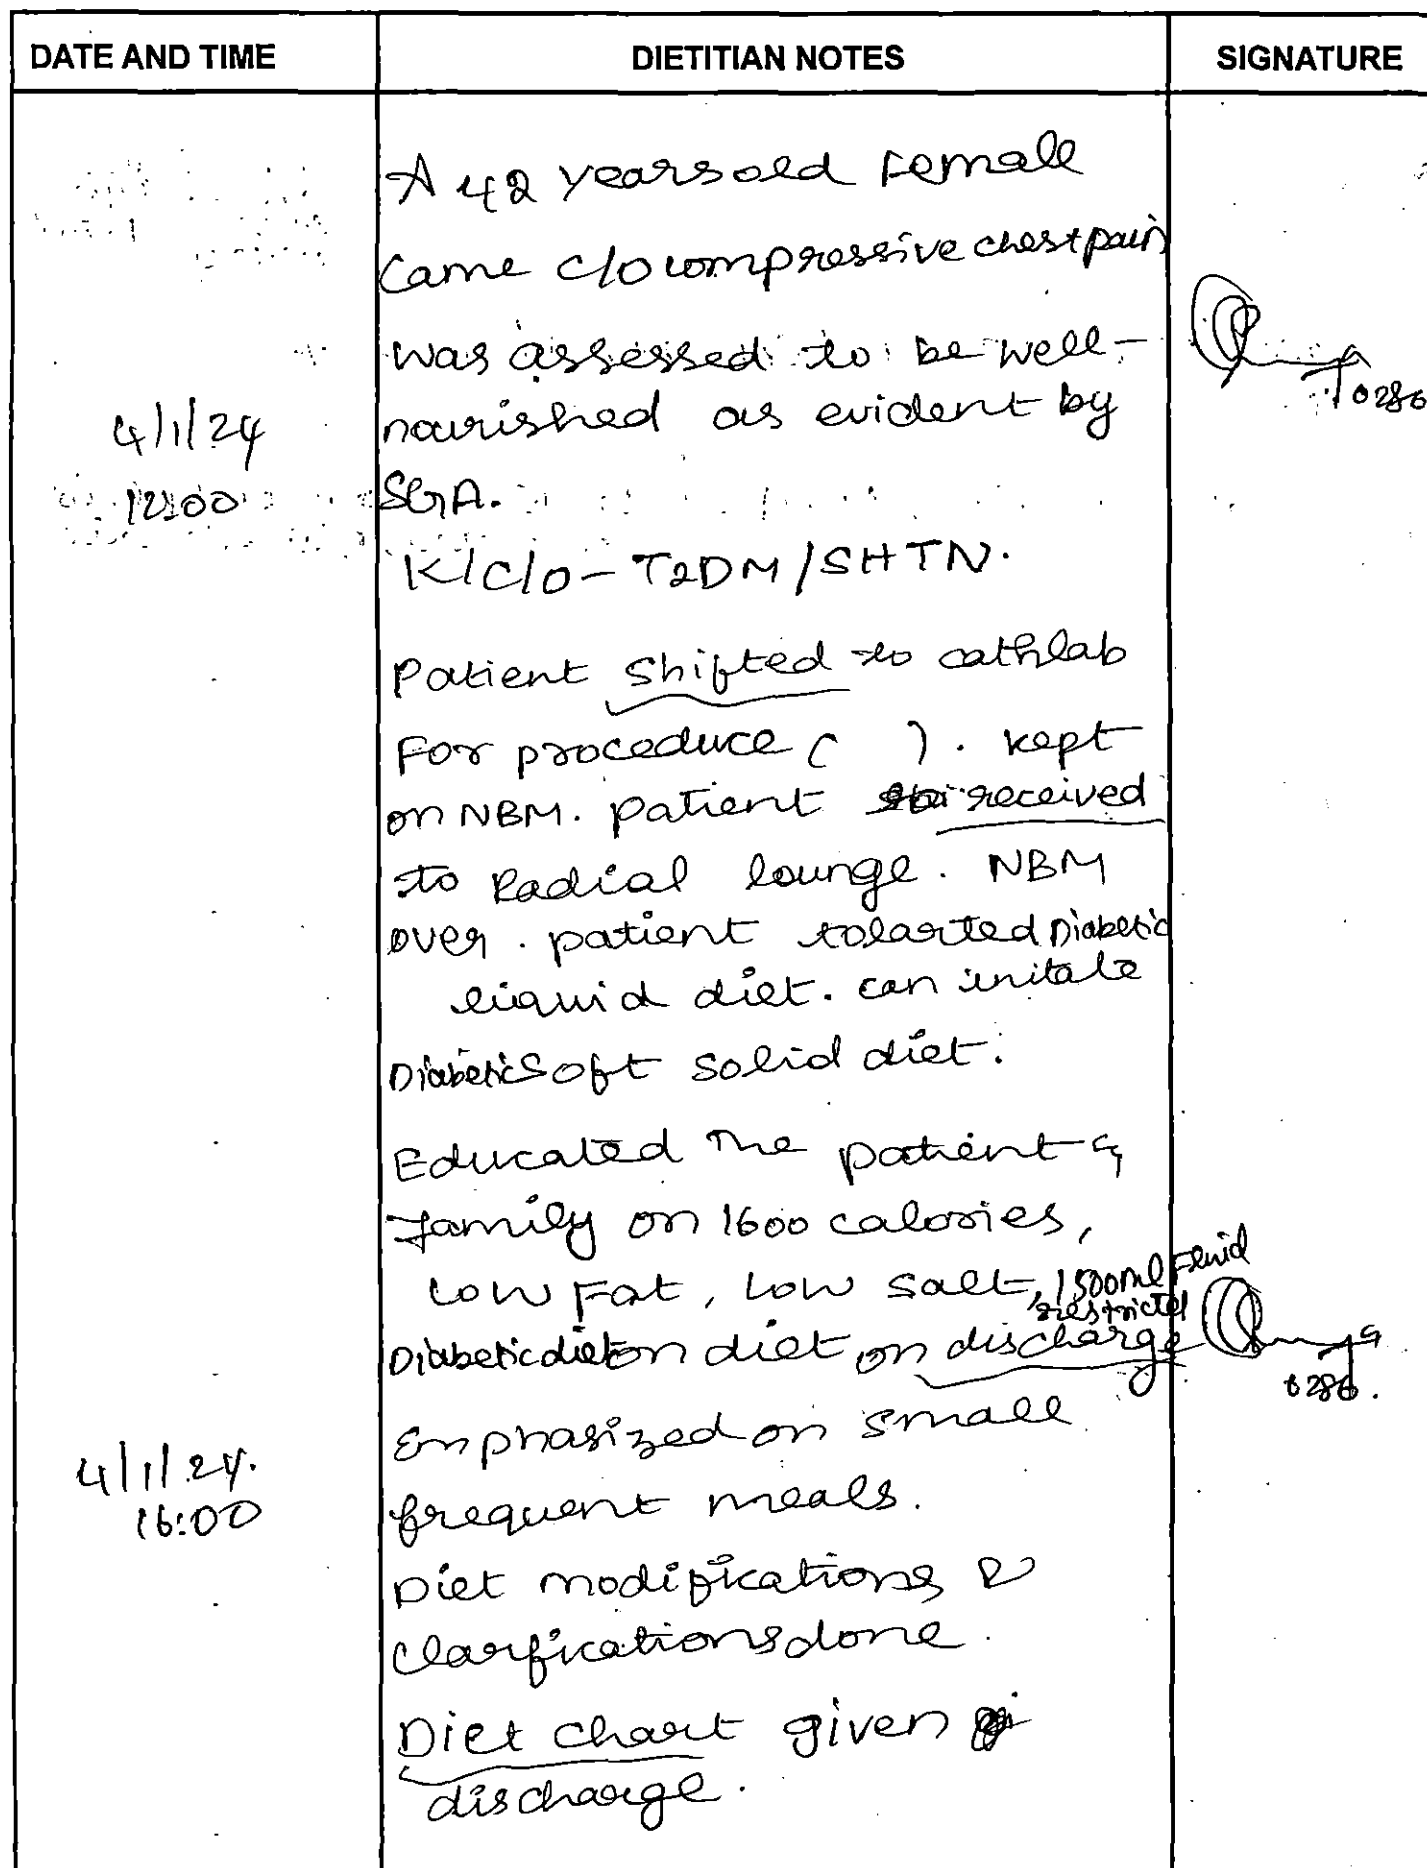 DATE AND TIME DIETITIAN NOTES SIGNATURE
A 42 years old Female
Came c/o compressive chest pain
was assessed to be well-
nourished as evident by
4/1/24
12:00
SGA.
K/C/O - T2DM/SHTN.
Patient shifted to cathlab
For proceduce ( ). kept
on NBM. patient received
to Radial lounge. NBM
over. patient tolarted Diabetic
liquid diet. can initate
Diabetic Soft solid diet.
Educated the patient &
family on 1600 calories,
Low Fat, Low salt, 1500ml Fluid
restricted
Diabetic diet on diet on discharge
Emphasized on small
4/1/24.
16:00
frequent meals.
Diet modifications &
clarfications done.
Diet chart given
discharge.